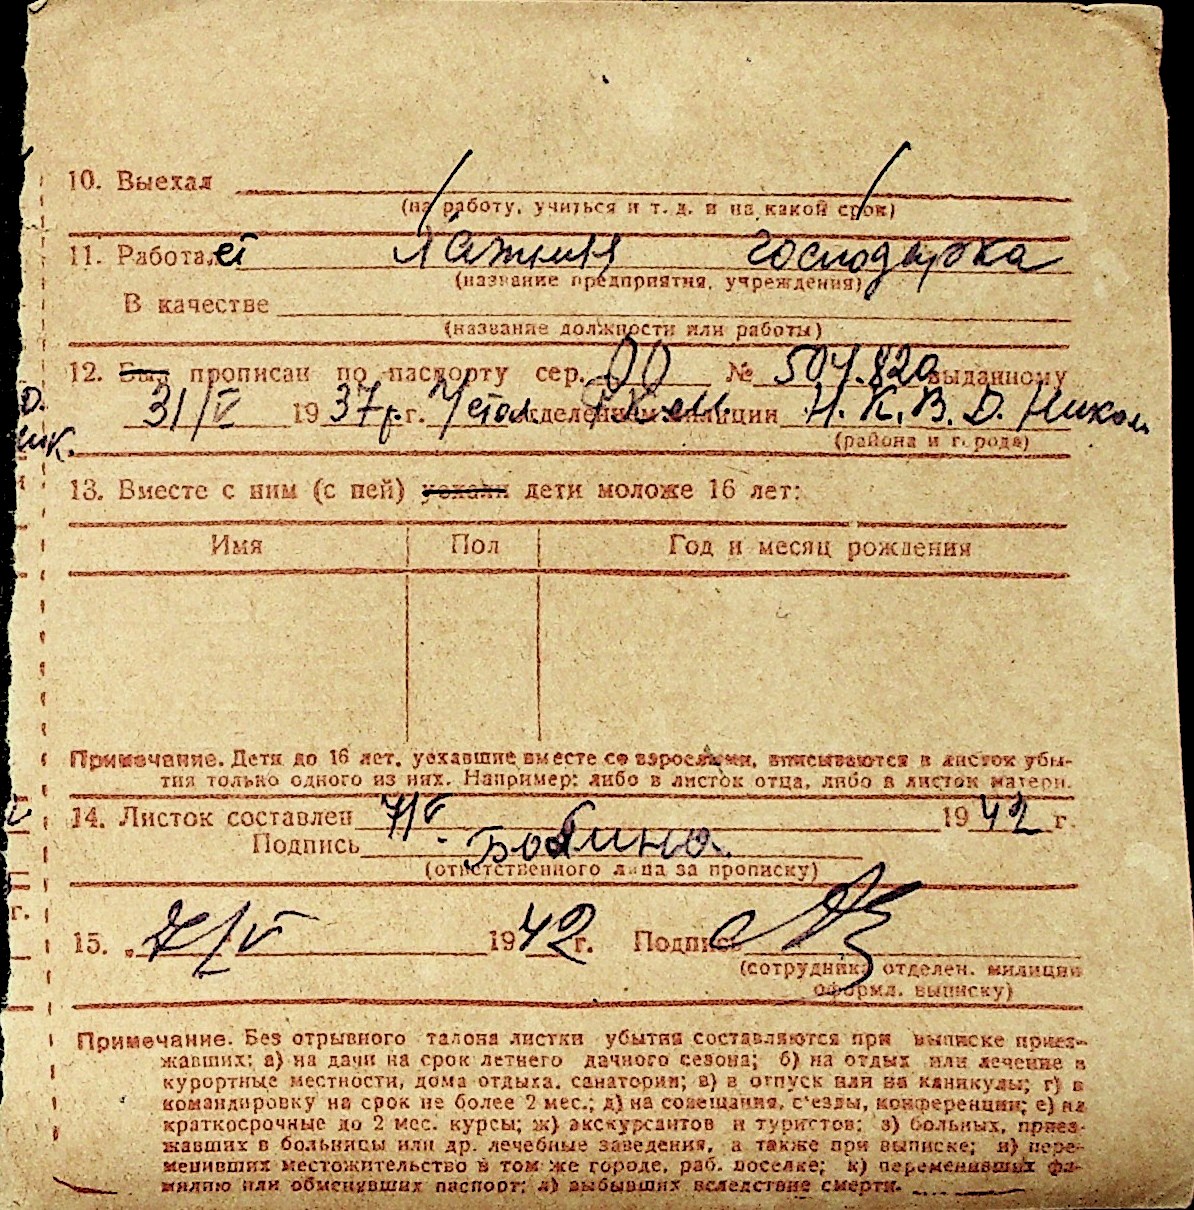 10. Выехал
(на работу, учиться и т. д. и на какой срок)
11. Работает господарка
(название предприятия, учреждения)
В качестве
(название должности или работы)
12. Был прописан по паспорту сер. № 504.820 выданному
31/V 1937 р. г. отделением милиции Н. К. В. Д. Никол
(района и города)
13. Вместе с ним (с ней) уехали дети моложе 16 лет:
Имя Пол Год и месяц рождения
Примечание. Дети до 16 лет, уехавшие вместе со взрослыми, вписываются в листок убы-
тия только одного из них. Например: либо в листок отца, либо в листок матери.
14. Листок составлен 7/V 1942 г.
Подпись
(ответственного лица за прописку)
15. „ 7/V 1942 г. Подпись
(сотрудника отделен. милиции
оформл. выписку)
Примечание. Без отрывного талона листки убытия составляются при выписке приез-
жавших: а) на дачи на срок летнего дачного сезона; б) на отдых или лечение в
курортные местности, дома отдыха, санатории; в) в отпуск или на каникулы; г) в
командировку на срок не более 2 мес.; д) на совещания, с'езды, конференции; е) на
краткосрочные до 2 мес. курсы; ж) экскурсантов и туристов; з) больных, приез-
жавших в больницы или др. лечебные заведения, а также при выписке; и) пере-
менивших местожительство в том же городе, раб. поселке; к) переменивших фа-
милию или обменувших паспорт; л) выбывших вследствие смерти.